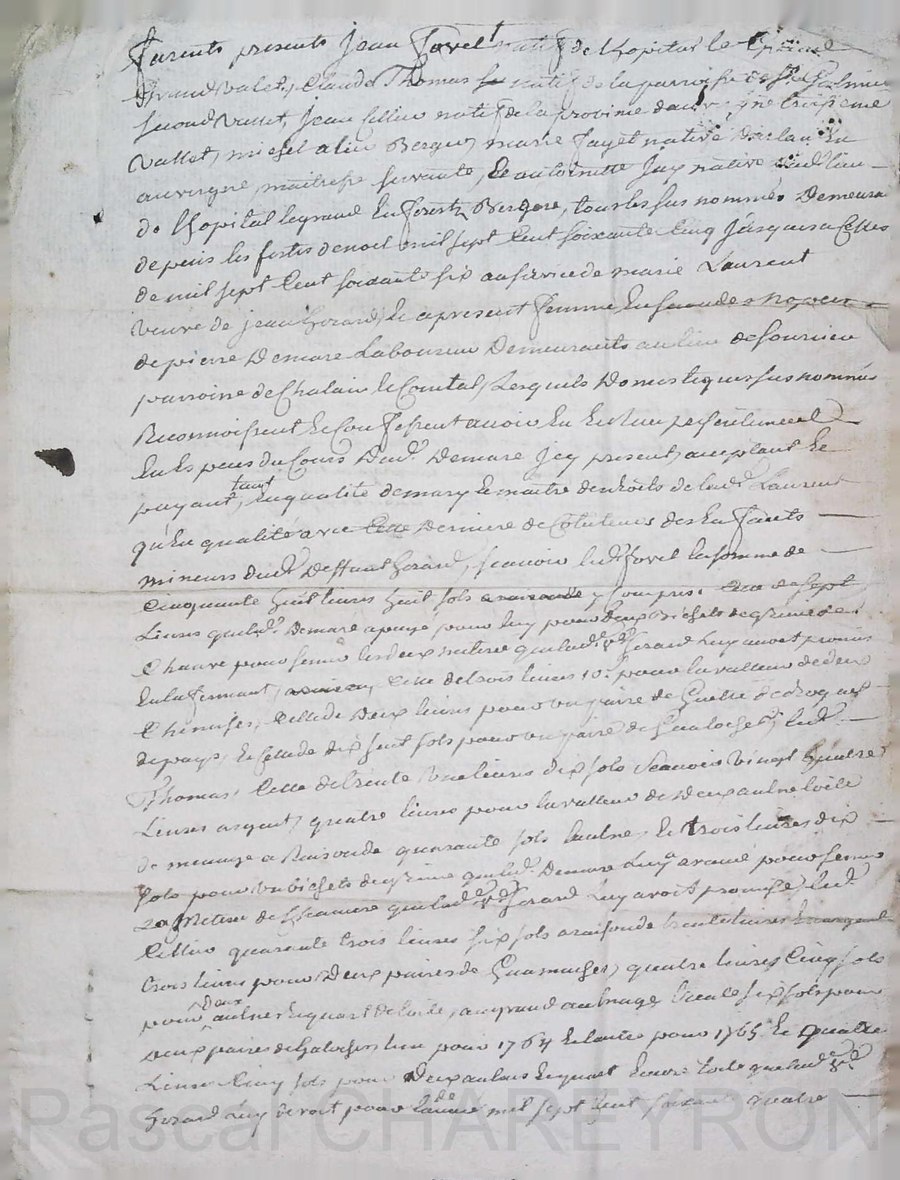 Furents presents Jean Fovet natif de Lhopital le
Grand Valet, Claude Thomas natif de la parroisse de St Galmier
second Vallet, Jean Cellier natif de la province dauvergne troisieme
Vallet, michel alin Berger, marie Fayet native en
auvergne, maitresse servante, Et antoinette Jay native
de Lhopital legrand En forest Bergere, tous les sus nommés Demeurés
depuis les festes de noel mil sept Cent soixante Cinq Jusques a Celles
de mil sept Cent soixante six au service de marie Laurent
veuve de jean Gerard, Et apresent femme En secondes nopces
de pierre Demare Laboureur Demeurants au lieu de Sourcieu
parroisse de Chalain le Comtal, Lesquels Domestiques sus nommés
Reconnoissent Et Confessent avoir Eu Et Recu
En Especes du Cours Dud. Demare Jcy present, acceptant Et
payant, tant En qualité de mary Et maitre des droits de lad. Laurent
qu'En qualité avec Cette Derniere de des Enfants
mineurs dud. Deffunt Gerard, scavoir led. Fovet la somme de
Cinquante huit livres huit sols y Compris de sept
Livres que led. Demare a payé pour luy pour deux bichets de graine de
Chanvre pour semer que led. Gerard Luy avoit promis
En la fermant, Celle de trois livres 10 s. pour la valleur de deux
Chemises, Celle de Deux livres pour un paire de Guetre
de pays, Et Celle de dix huit sols pour un paire de Galoches, Led.
Thomas, Celle de trente une livres dix sols scavoir vingt quatre
Livres argent, quatre livres pour la valleur de Deux aulnes toile
de menage a Raison de quarante sols Laulne, Et trois livres dix
sols pour un bichets de graine que led. Demare Luy a pour semer
La de Chanvre que led. Gerard Luy avoit promise Led.
Cellier quarante trois livres six sols a raison de trente livres En argent
trois livres pour Deux paires de quatre livres Cinq sols
pour deux aulnes Et quart de toile, au grand aulnage, trente six sols pour
deux paires de Galoches Lun pour 1764 Et lautre pour 1765 Et quatre
Livres Cinq sols pour Deux aulnes Et quart toile que led.
Gerard Luy devoit pour lannée mil sept Cent soixante quatre
Pascal CHAREYRON